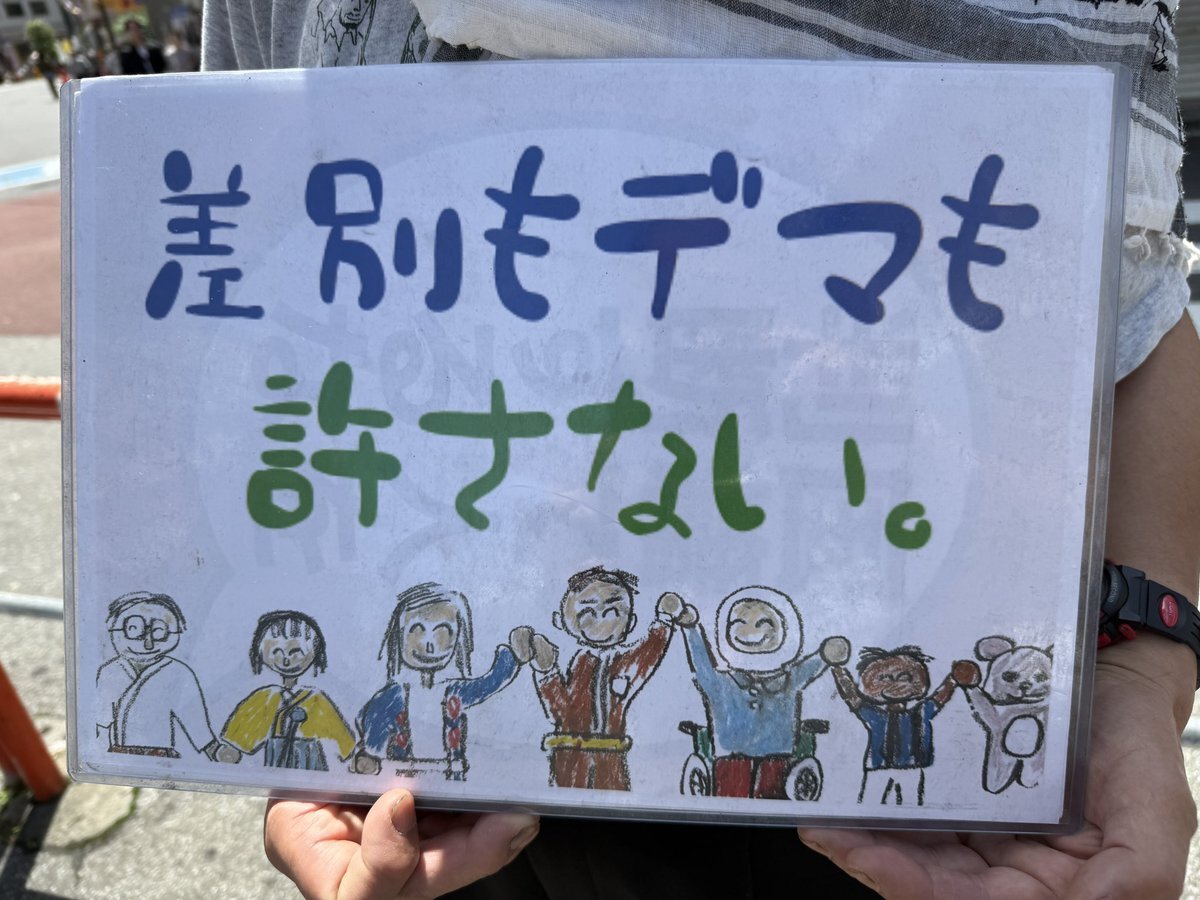 差別もデマも
許さない。